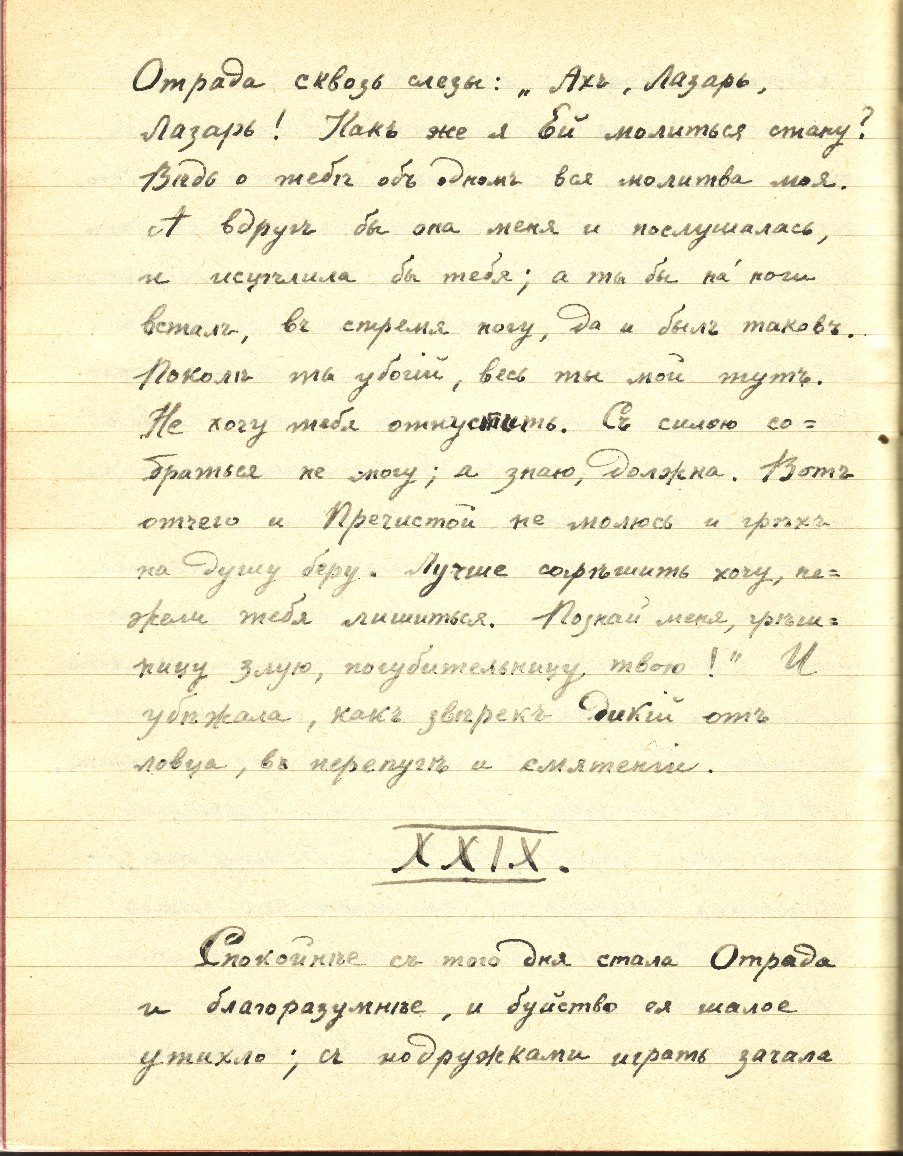 Отрада сквозь слезы: „Ахъ, Лазарь,
Лазарь! Какъ же я Ей молиться стану?
Вѣдь о тебѣ объ одномъ вся молитва моя.
А вдругъ бы она меня и послушалась,
и исцѣлила бы тебя; а ты бы на́ ноги
всталъ, въ стремя ногу, да и былъ таковъ.
Поколѣ ты убогій, весь ты мой тутъ.
Не хочу тебя отпустить. Съ силою со=
браться не могу; а знаю, должна. Вотъ
отчего и Пречистой не молюсь и грѣхъ
на душу беру. Лучше согрѣшить хочу, не=
жели тебя лишиться. Познай меня, грѣш=
ницу злую, погубительницу твою!" И
убѣжала, какъ звѣрекъ дикій отъ
ловца, въ перепугѣ и смятеніи.
XXIX.
Спокойнѣе съ того дня стала Отрада
и благоразумнѣе, и буйство ея шалое
утихло; съ подружками играть зачала